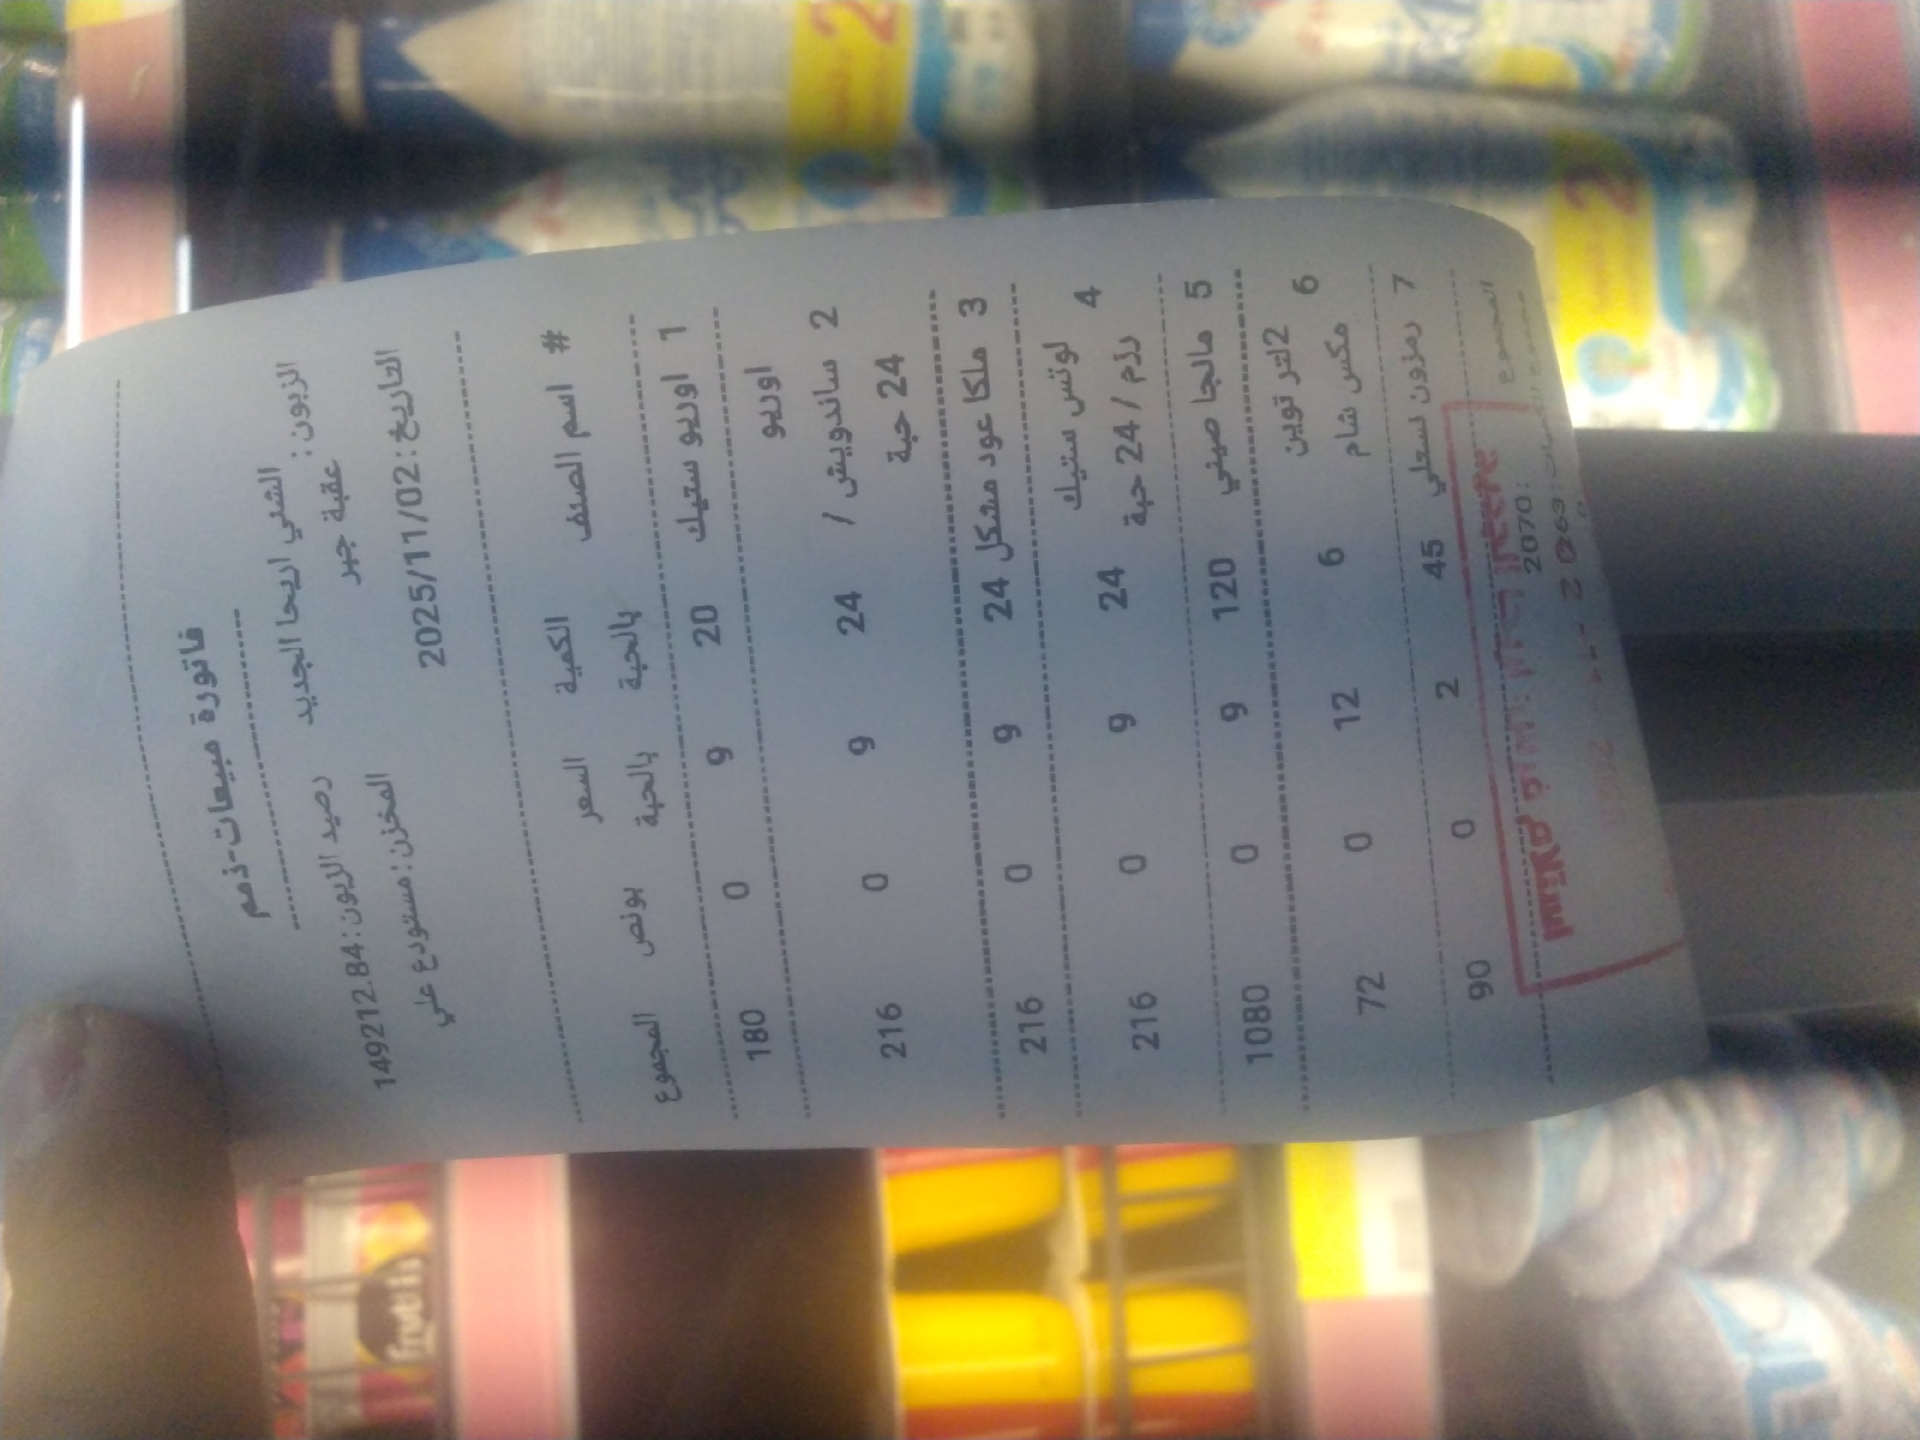 فاتورة مبيعات-ذمم
الزبون: الشني اريحا الجديد رصيد الزبون: 149212.84
عقبة جبر المخزن: مستودع علي
التاريخ: 2025/11/02
# اسم الصنف الكمية بالحبة السعر بالحبة بونص المجموع
1 اوريو ستيك 20 9 0 180
اوريو
2 ساندويش / 24 9 0 216
24 حبة
3 ملكا عود مشكل 24 9 0 216
4 لوتس ستيك
رزم / 24 حبة 24 9 0 216
5 مالجا صيني 120 9 0 1080
6 2لتر توين
مكس شام 6 12 0 72
7 رمزون نسعلي 45 2 0 90
المجموع : 2070
frutis
2
2